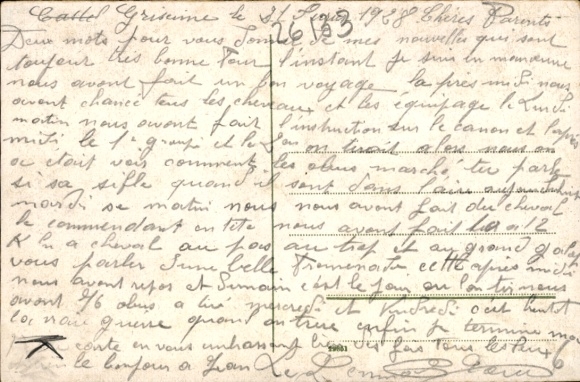 Cattel Griseinne le 31 1928 Chères Parents
Deux mots pour vous donner de mes nouvelles qui sont
26183
toujour très bonne pour l'instant je suis en manœuvre
nous avont fait un bon voyage la près midi nous
avont chancé tous les chevaux et les équipage le Lundi
matin nous avont fait l'instruction sur le canon et l'aprè
midi le 1e groupe et le on tirait alors nous on
a était voir comment les obus marche tu parle
si sa sifle quand il sont dans l'aire aujourd'hui
mardi se matin nous nous avont fait du cheval
le commandant en tête nous avont fait 10 a 12
K n a cheval au pas au trop et au grand galop
vous parler d'une belle promenade cette après midi
nous avont repos et demain c'est le jour ou l'on tir nous
avont 96 obus a tiré mercredi et vendredi c'est bientot
la guerre quand on tire enfin je termine ma
carte en vous embrassant bien des fois tous les deux
le bonjour a Jean
29951